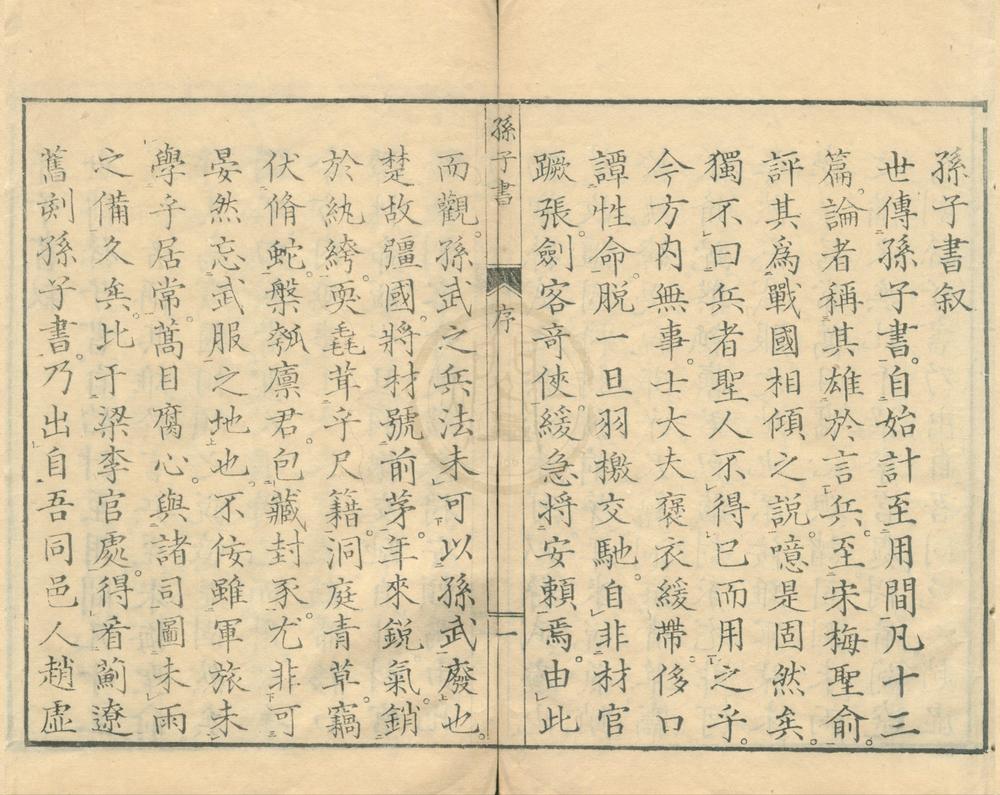 孫子書叙
世傳孫子書。自始計至用間凡十三
篇。論者稱其雄於言兵。至宋梅聖俞。
評其為戰國相傾之說。噫是固然矣。
獨不曰兵者聖人不得已而用之乎。
今方内無事。士大夫褒衣緩帶。侈口
譚性命。脱一旦羽檄交馳。自非材官
蹶張。劍客奇俠。緩急將安賴焉。由此
孫子書
序
一
而觀。孫武之兵法未可以孫武廢也。
楚故彊國。將材號前茅。年來銳氣。銷
於紈綺。耎毳茸乎尺籍。洞庭青草。竊
伏脩蛇。槃瓠廪君。包藏封豕。尤非可
晏然忘武服之地也。不佞雖軍旅未
學乎居常。蒿目腐心。與諸司圖未雨
之備久矣。比于梁李官處。得看薊遼
舊刻孫子書。乃出自吾同邑人趙虛